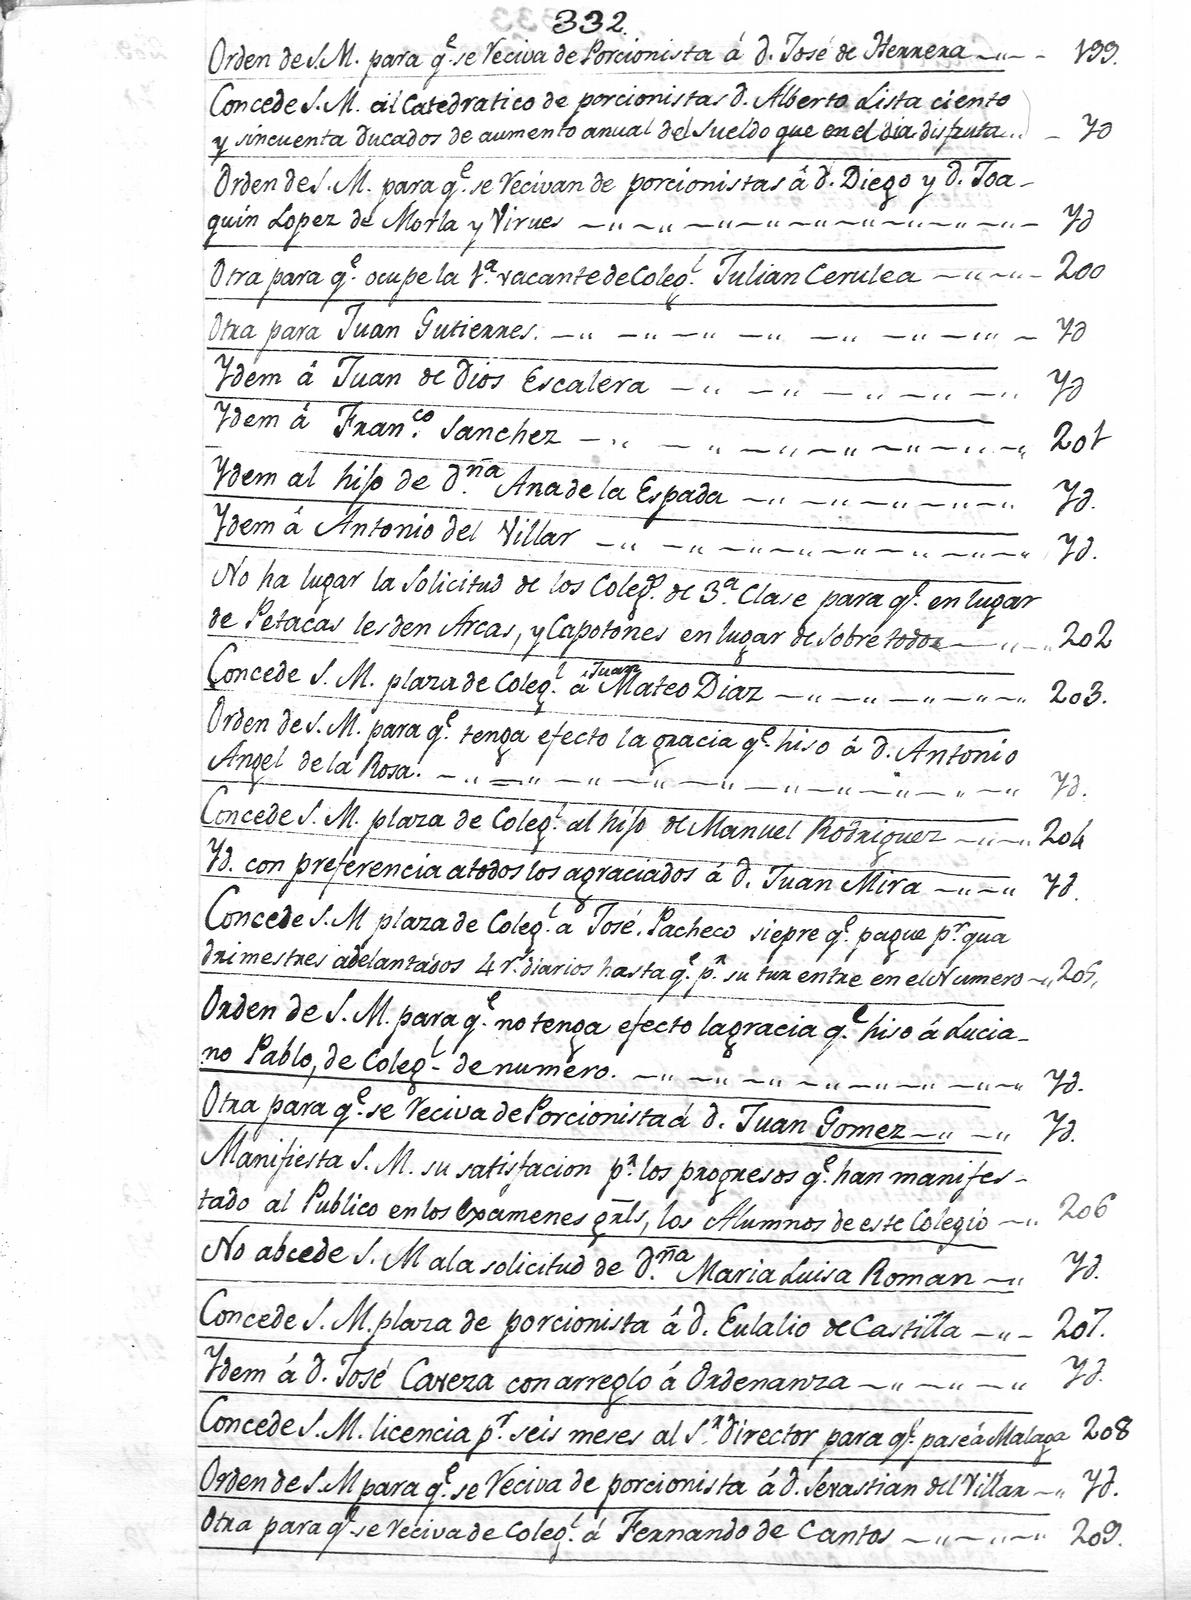 332.
Orden de S.M. para q.e se Reciva de Porcionista á d. José de Herrera — „ — - 199.
Concede S. M. al Catedratico de porcionistas d. Alberto Lista ciento
y sincuenta ducados de aumento anual del sueldo que en el dia disfruta... - Yd
Orden de S. M. para q.e se Recivan de porcionistas á d. Diego y d. Joa-
quin Lopez de Morla y Virues — „ — „ — „ — „ — „ — „ — „ — Yd
Otra para q.e ocupe la 1.a vacante de Coleg.l Julian Cerulea — „ — „ — 200
Otra para Juan Gutierres. — „ — „ — „ — „ — „ — „ — Yd
Ydem á Juan de Dios Escalera — „ — „ — „ — „ Yd
Ydem á Fran.co Sanchez — „ — „ — „ — „ — „ 201
Ydem al hijo de d.ña Ana de la Espada — „ — „ — „ — „ Yd.
Ydem á Antonio del Villar — „ — „ — „ — „ — „ Yd.
No ha lugar la solicitud de los Coleg.s de 3.a Clase para q.e en lugar
de Petacas les den Arcas, y Capotones en lugar de sobre todos — „ — „ 202
Concede S. M. plaza de Coleg.l á Juan Mateo Diaz — „ — „ — „ — „ 203.
Orden de S. M. para q.e tenga efecto la gracia q.e hiso á d. Antonio
Angel de la Rosa. — „ — „ — „ — „ — „ — „ — „ Yd.
Concede S. M. plaza de Coleg.l al hijo de Manuel Rodriguez — „ — „ 204
Yd. con preferencia a todos los agraciados á d. Juan Mira — „ — „ Yd.
Concede S. M plaza de Coleg.l a José Pacheco siepre q.e pague p.r qua
drimestres adelantados 4 r.s diarios hasta q.e p.r su tur entre en el Numero — „ 205,
Orden de S. M. para q.e no tenga efecto la gracia q.e hiso á Lucia-
no Pablo, de Coleg.l de numero. — „ — „ — „ — „ — „ — „ Yd.
Otra para q.e se Reciva de Porcionista á d. Juan Gomez — „ — „ Yd.
Manifiesta S. M. su satisfacion p.r los progresos q.e han manifes-
tado al Publico en los Examenes gr̃ls, los Alumnos de este Colegio — „ 206
No abcede S. M a la solicitud de d.ña Maria Luisa Roman — „ Yd.
Concede S. M. plaza de porcionista á d. Eulalio de Castilla — „ — 207.
Ydem á d. José Caveza con arreglo á Ordenanza — „ — „ — „ Yd.
Concede S. M. licencia p.r seis meses al S.r Director para q.e pase á Malaga 208
Orden de S. M para q.e se Reciva de porcionista á d. Sevastian del Villar — „ Yd.
Otra para q.e se Reciva de Coleg.l á Fernando de Cantos — „ — „ — „ 209.